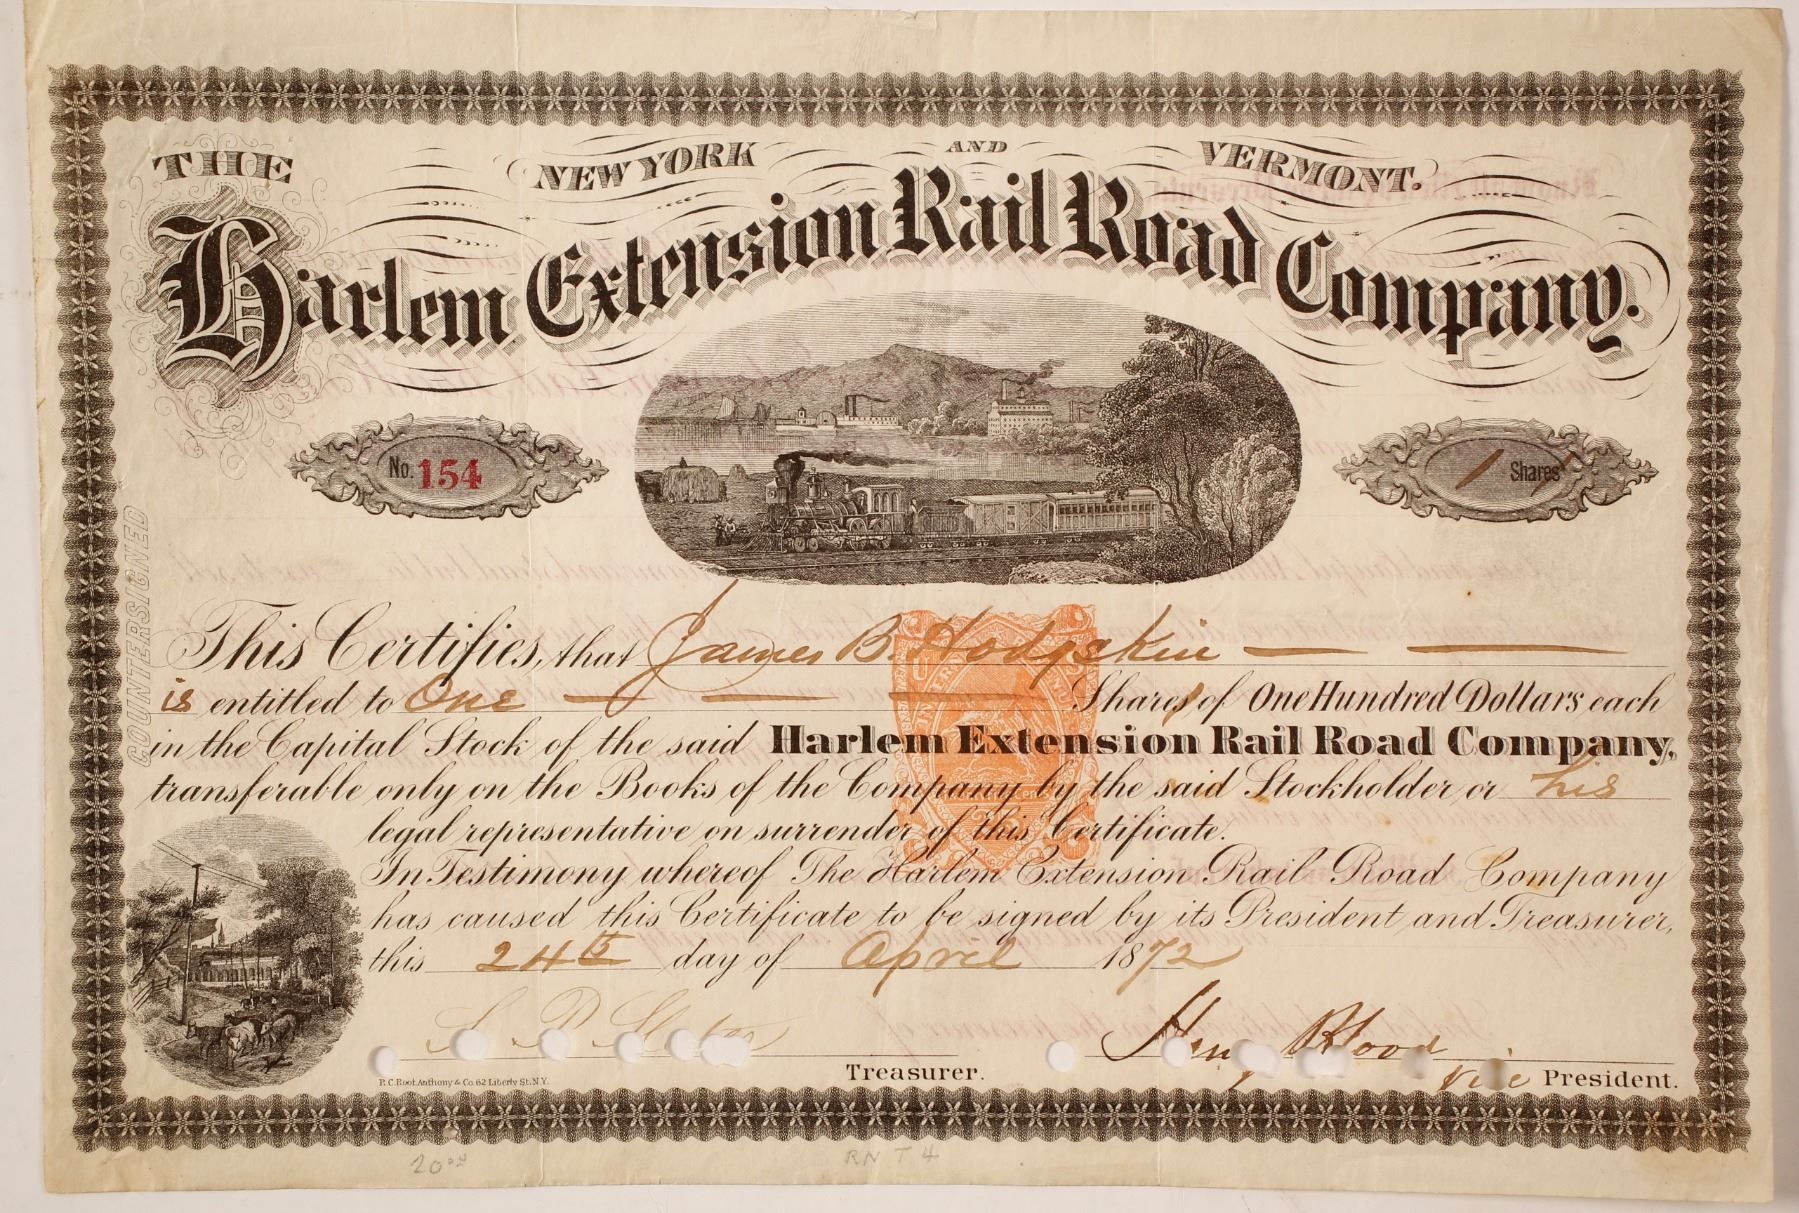 THE NEW YORK AND VERMONT.
Harlem Extension Rail Road Company.
No. 154
1 Shares
COUNTERSIGNED
This Certifies, that James B. Hodgskin
is entitled to One Shares of One Hundred Dollars each
in the Capital Stock of the said Harlem Extension Rail Road Company,
transferable only on the Books of the Company by the said Stockholder or his
legal representative on surrender of this Certificate.
In Testimony whereof The Harlem Extension Rail Road Company
has caused this Certificate to be signed by its President and Treasurer,
this 24th day of April 1872
Treasurer.
Vice President.
R.C. Root, Anthony & Co. 62 Liberty St. N.Y.
20.00
RN T4